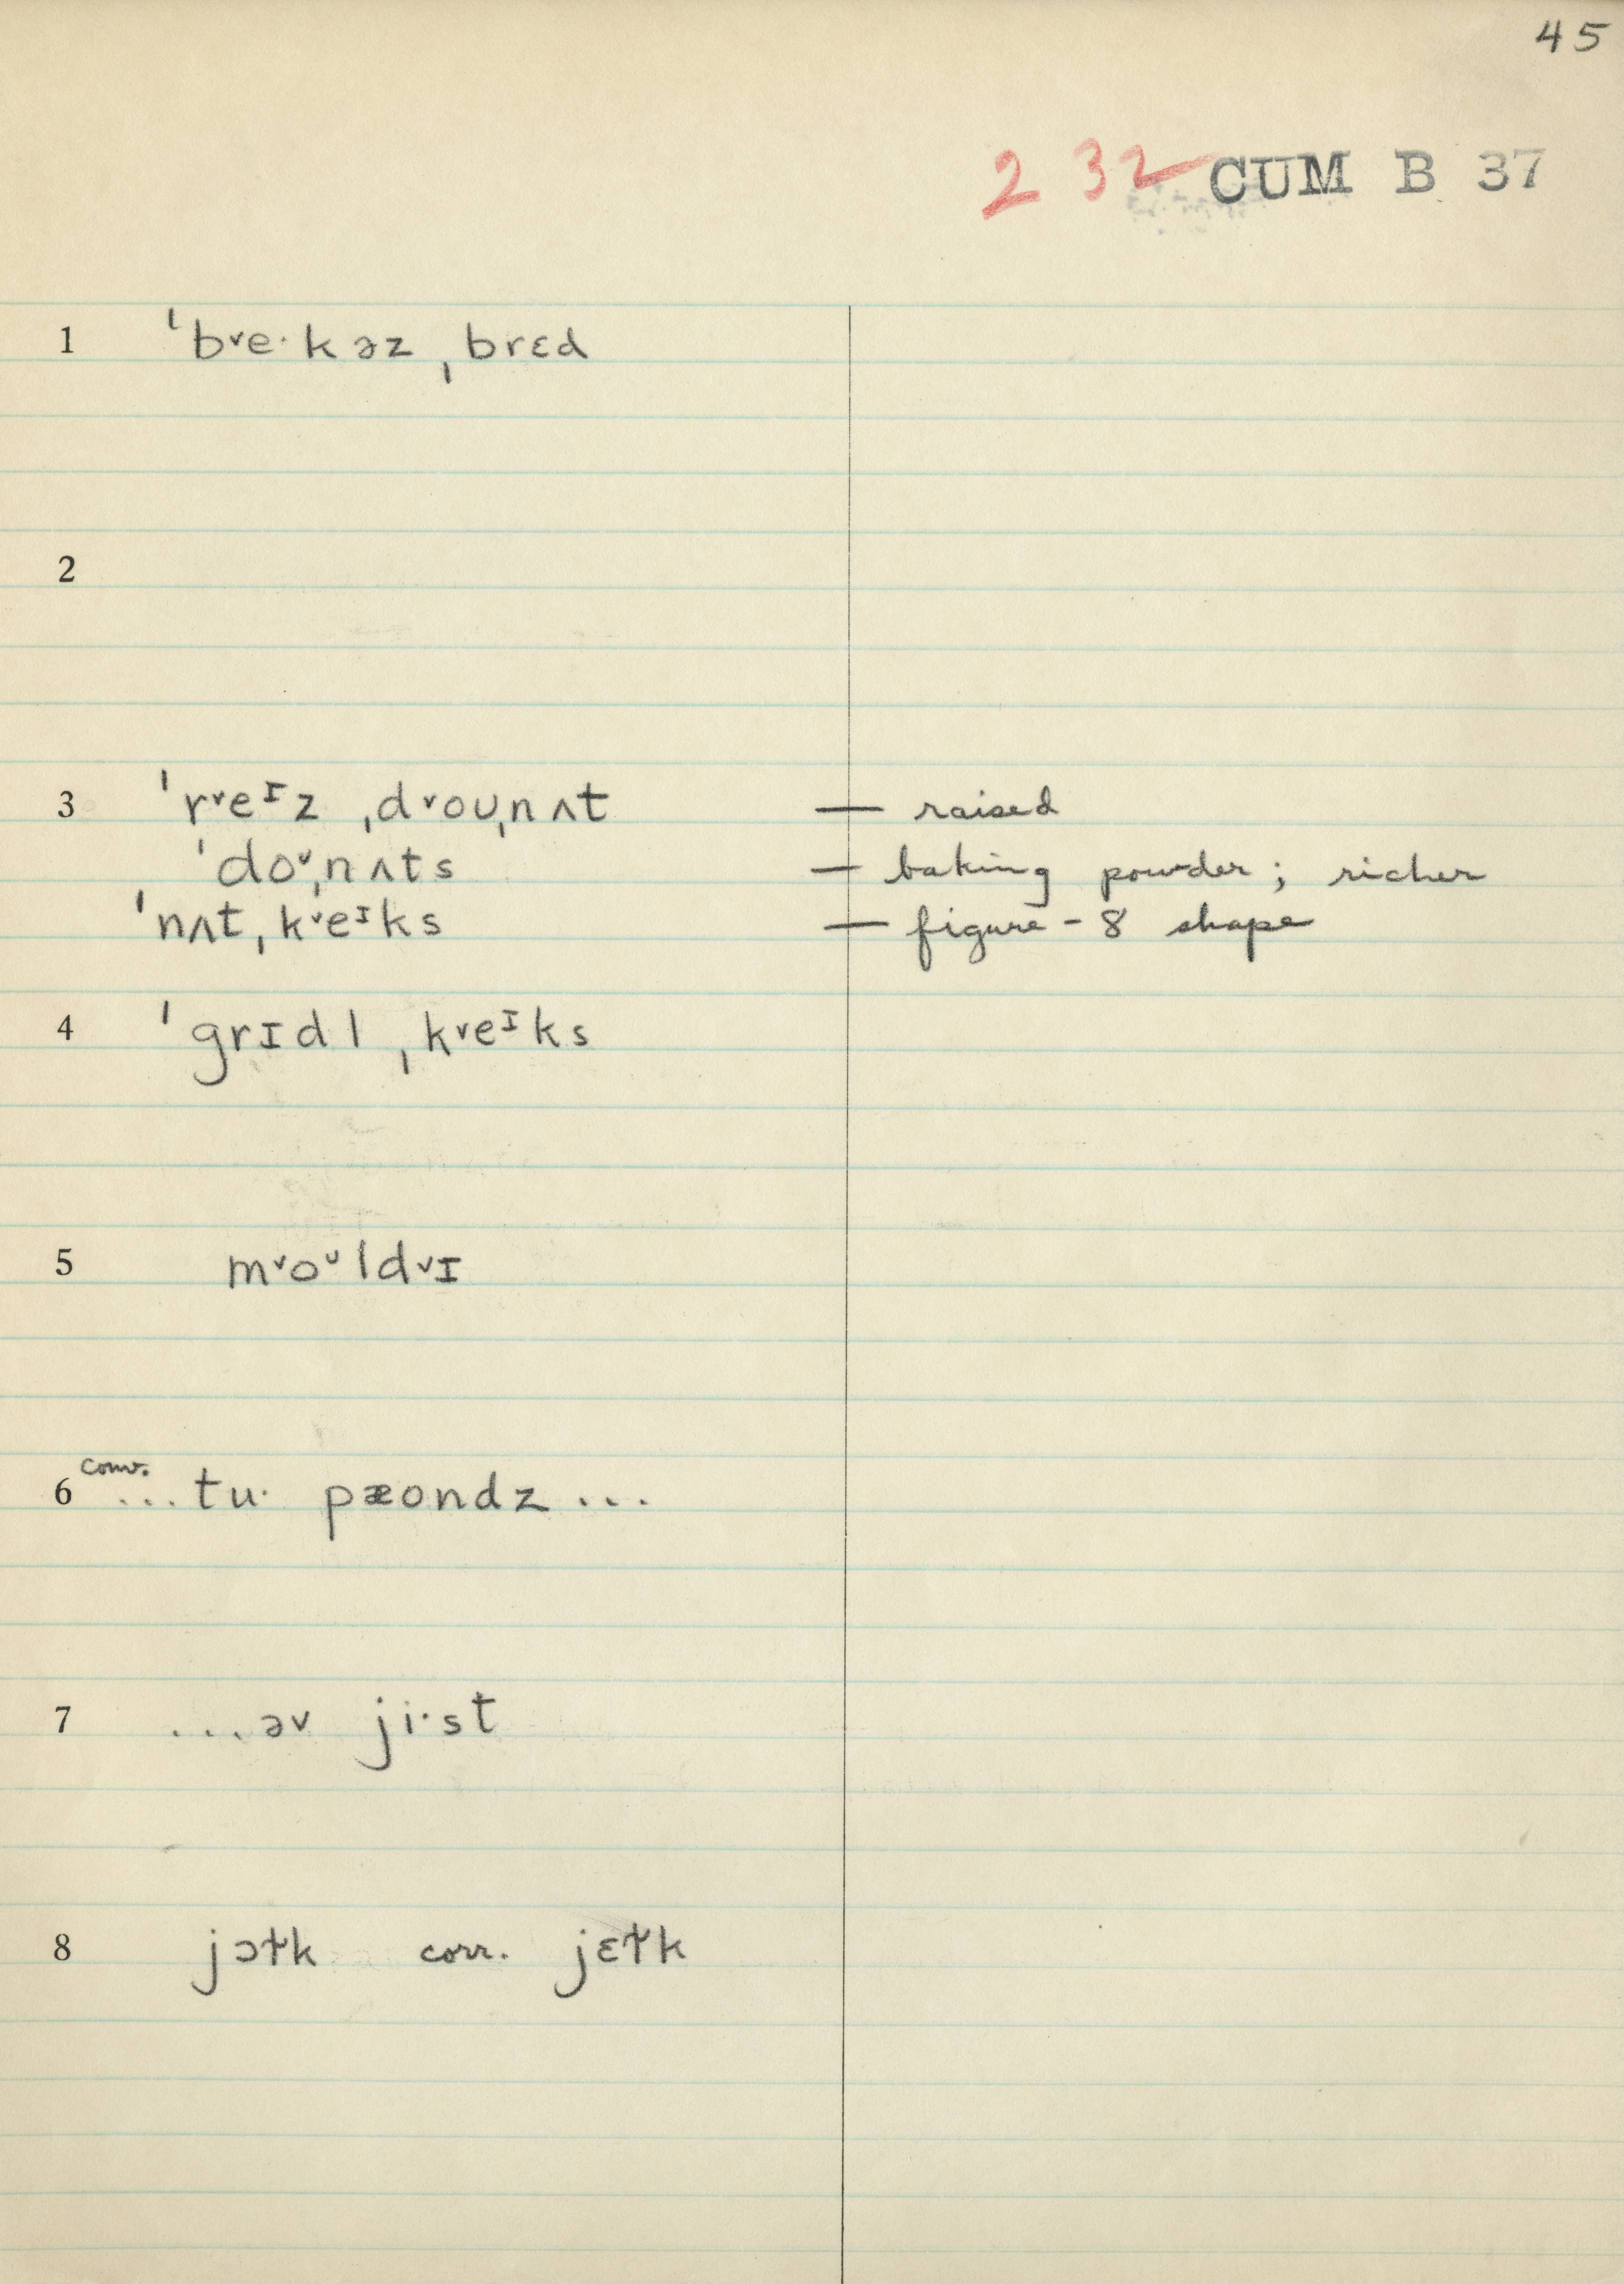 45
2 32 CUM B 37
1 ˈb˅e·kəz ˌbrɛd
2
3 ˈr˅eᶦz ˌd˅oʊˌnʌt — raised
ˈdo˅ˌnʌts — baking powder; richer
ˈnʌt ˌk˅eᶦks — figure-8 shape
4 ˈgrɪdl ˌk˅eᶦks
5 m˅oᶸld˅ɪ
6 conv. ...tu· pæondz...
7 ...əv ji·st
8 jɔɫk corr. jɛɫk